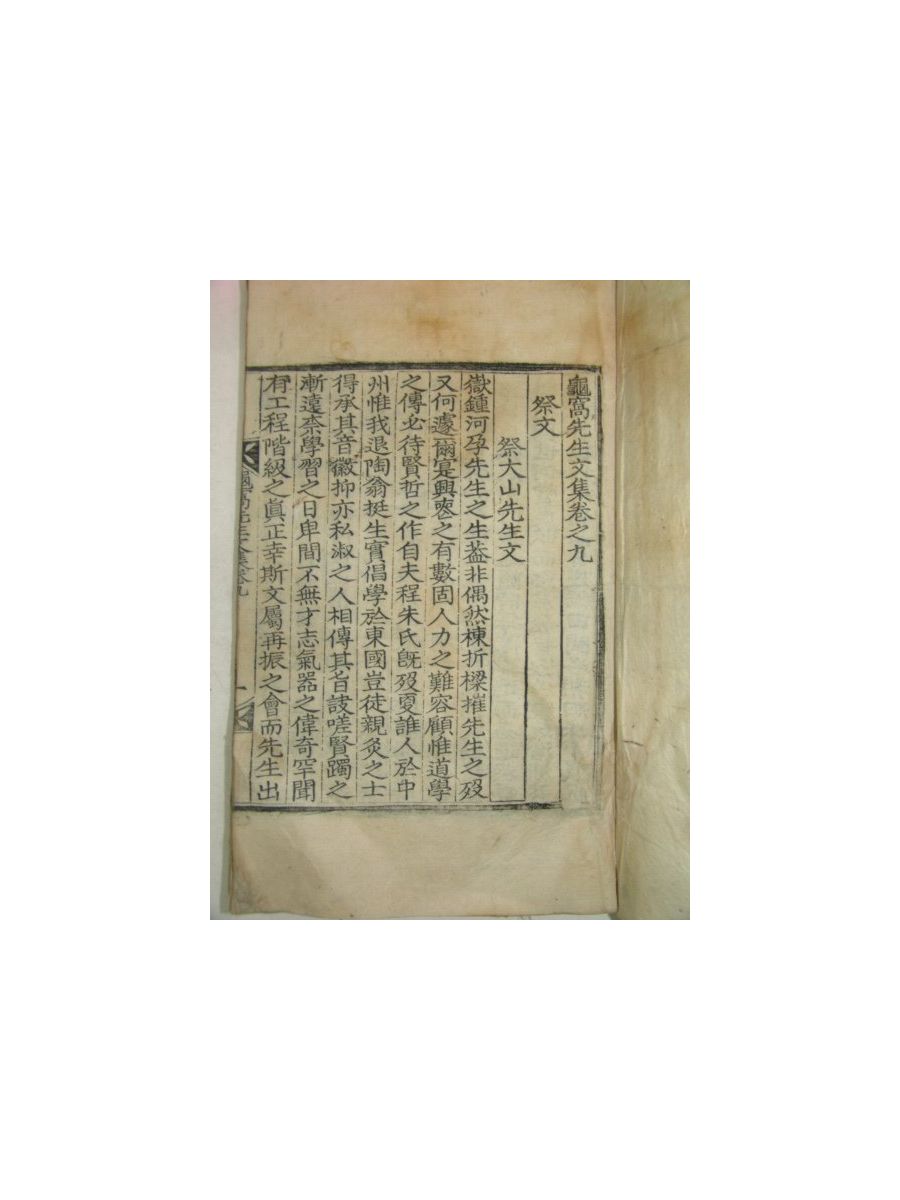 龜窩先生文集卷之九
祭文
祭大山先生文
嶽鍾河孕先生之生葢非偶然棟折樑摧先生之歿
又何遽爾寔興喪之有數固人力之難容顧惟道學
之傳必待賢哲之作自夫程朱氏旣歿夐誰人於中
州惟我退陶翁挺生實倡學於東國豈徒親灸之士
得承其音徽抑亦私淑之人相傳其旨訣嗟賢躅之
漸遠柰學習之日卑間不無才志氣器之偉奇罕聞
有工程階級之眞正幸斯文屬再振之會而先生出
龜窩先生文集卷九 一